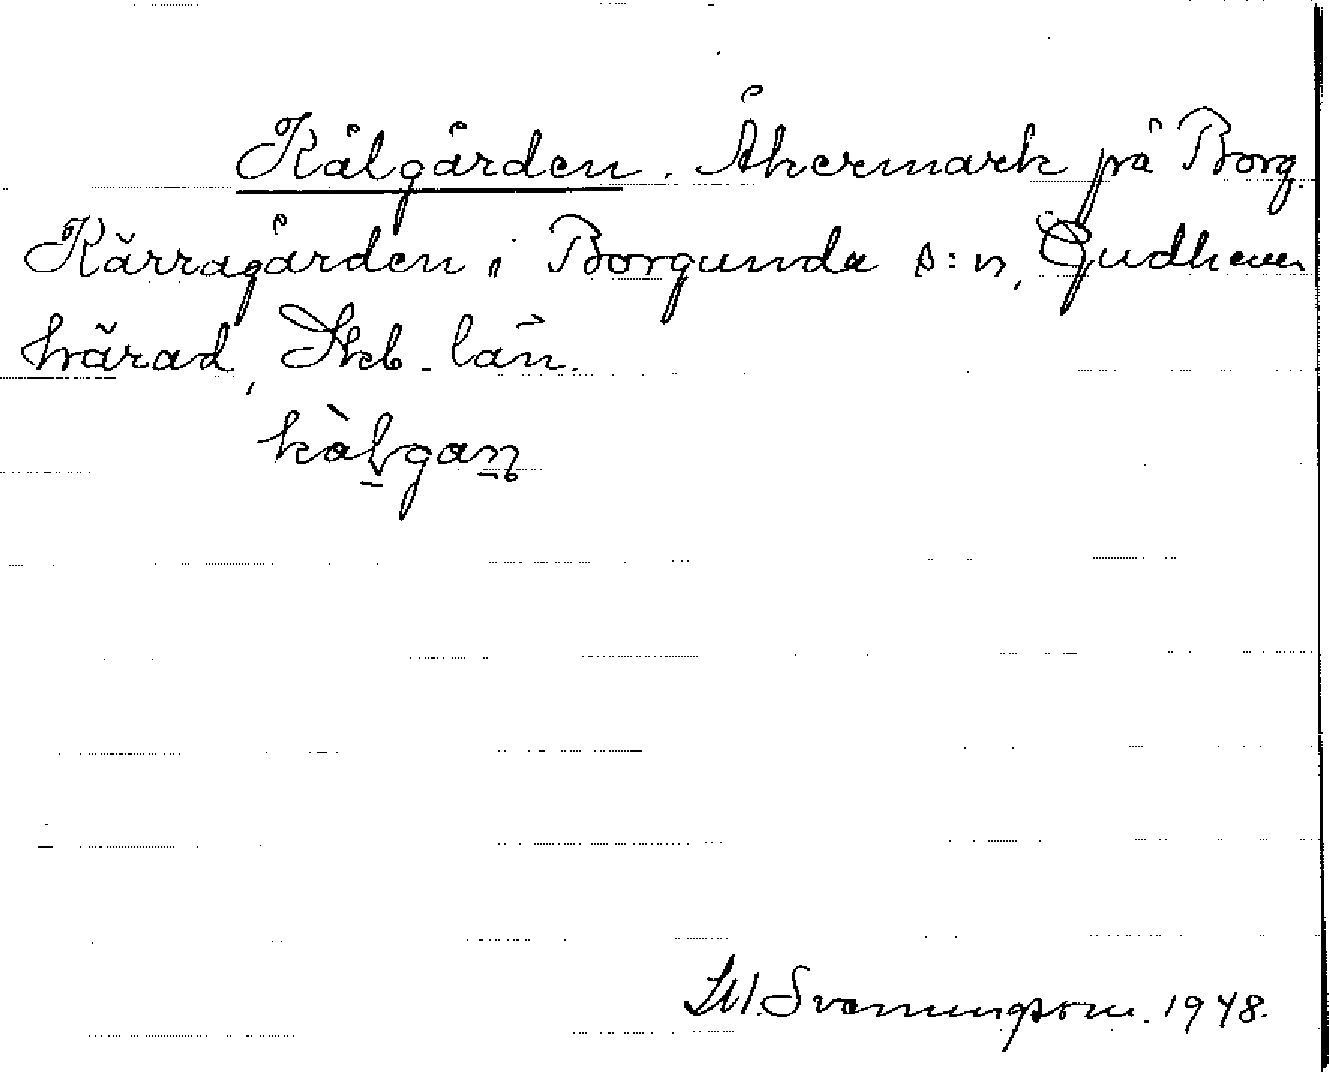 Kålgården. Åkermark på Borg.
Kärragården i Borgunda s:n, Gudhems
härad, Skb. län.
kålgan
M. Svenningsson. 1948.